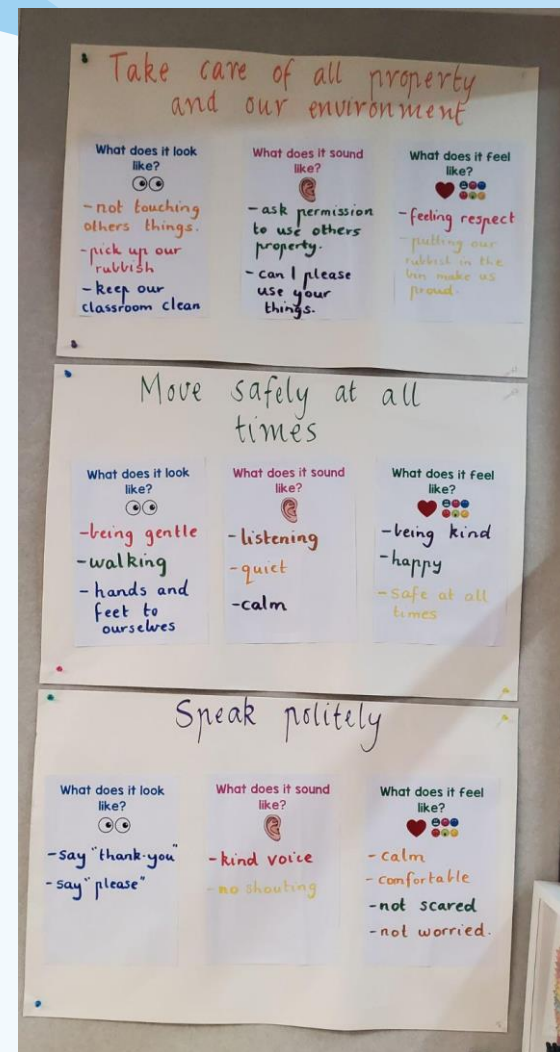 Take care of all property
and our environment
What does it look
like?
-not touching
others things.
-pick up our
rubbish
-keep our
classroom clean
What does it sound
like?
-ask permission
to use others
property.
-can I please
use your
things.
What does it feel
like?
-feeling respect
-putting our
rubbish in the
bin make us
proud.
Move safely at all
times
What does it look
like?
-being gentle
-walking
-hands and
feet to
ourselves
What does it sound
like?
-listening
-quiet
-calm
What does it feel
like?
-being kind
-happy
-safe at all
times
Speak politely
What does it look
like?
-say "thank-you"
-say "please"
What does it sound
like?
-kind voice
-no shouting
What does it feel
like?
-calm
-comfortable
-not scared
-not worried.